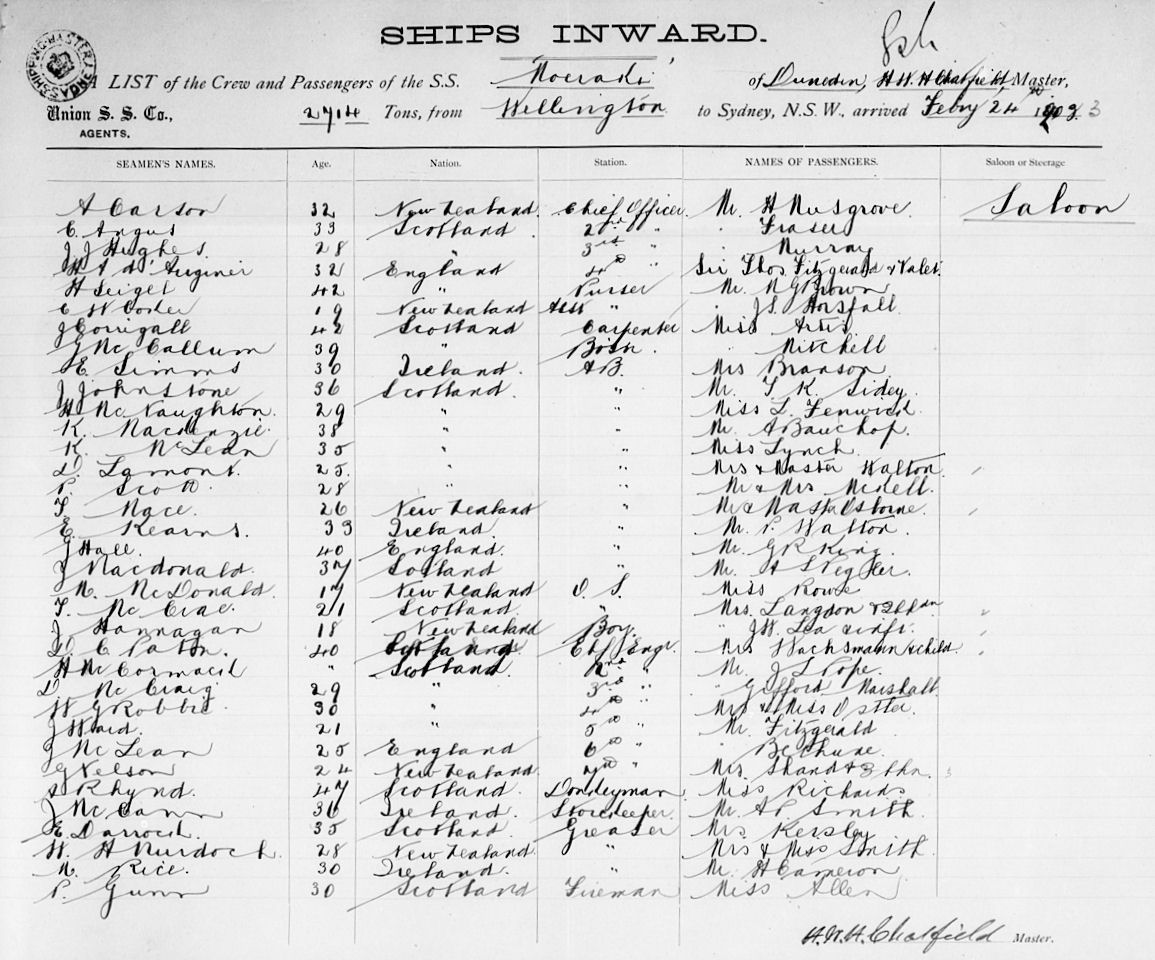 SHIPS INWARD.
A LIST of the Crew and Passengers of the S.S. "Moeraki" of Dunedin, H W H Chatfield Master,
Union S. S. Co., 2714 Tons, from Wellington to Sydney, N.S.W., arrived Febry 24th 1903
AGENTS.
SEAMEN'S NAMES. Age. Nation. Station. NAMES OF PASSENGERS. Saloon or Steerage
A Carson 32 New Zealand Chief Officer Mr. H Musgrove Saloon
C. Angus 33 Scotland 2nd " " Fraser
J J Hughes 28 " 3rd " " Murray
32 England 4th " Sir Thos Fitzgerald & Valet
H Seigel 42 " Purser Mr. N G Brown
C W Coster 19 New Zealand Asst " " J S. Horsfall
J Corrigall 42 Scotland Carpenter Miss Artis
J Mc Callum 39 " Bosn. " Mitchell
E. Simms 30 Ireland. A B. Mrs Branson
J Johnstone 36 Scotland. " Mr. T K Sidey
H Mc Naughton. 29 " " Miss L. Fenwick
K. Mackenzie 38 " " Mr. A Bauchop.
K. McLean 35 " " Miss Lynch
D. Lamont. 25. " " Mrs & Master Walton
P. Scott 28 " " Mr & Mrs Mckell.
T. Mace. 26 New Zealand " Mr & Mastr Osborne.
E. Kearns. 33 Ireland. " Mr. P. Walton
J Hall. 40 England. " Mr. G R King.
J Macdonald. 37 Scotland " Mr. A S Kegler.
M. McDonald. 17 New Zealand O. S. Miss Rowe
T. Mc Crae. 21 Scotland. " Mrs. Langdon & 2 chdn
J. Hannagan 18 New Zealand Boy. " J W. Lea & inft.
D C Paton. 40 Scotland Chf Engr. Mrs Wachsmann & child
H McCormack " Scotland 2nd " Mr. J S Pope
D Mc Craig 29 " 3rd " " Gifford Marshall
W G Robbie 30 " 4th " Mrs & Miss Ostler
J Ward. 21 " 5th " Mr. Fitzgerald
J McLean 25 England 6th " " Bethune.
G Nelson 24 New Zealand. 7th " Mrs. Shand & 3 chn. 3
S Rhynd. 47 Scotland. Donkeyman Miss Richards
J McCann 36 Ireland. Storekeeper. Mr A P Smith
E. Darroch. 35 Scotland. Greaser Mrs Kersley
W. H Murdoch. 28 New Zealand. " Mrs & Miss Smith
M. Rice. 30 Ireland. " Mr. H Cameron
P. Gunn 30 Scotland Fireman Miss Allen
H.W.H. Chatfield Master.